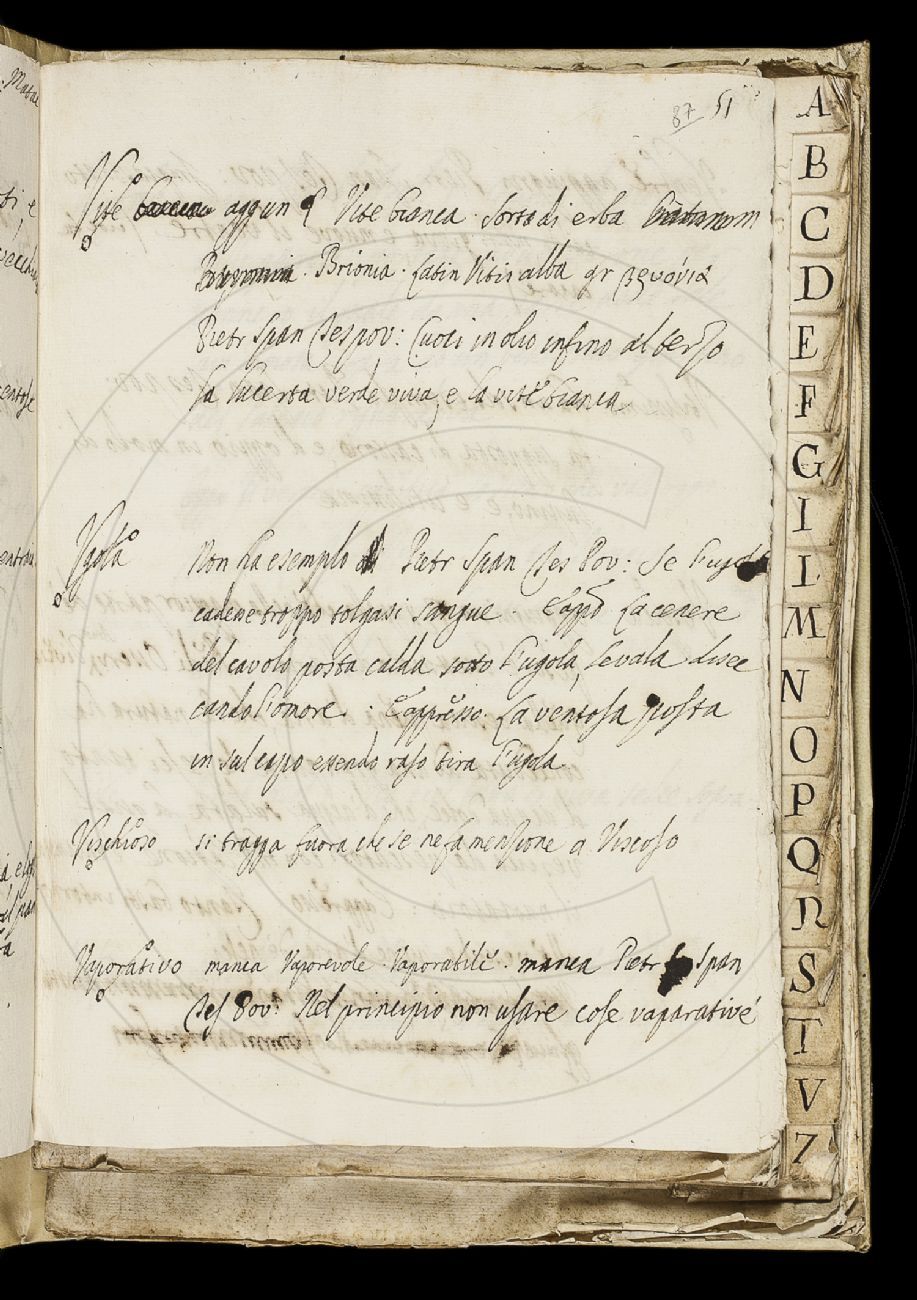 87 51
Vite aggiun Vite bianca. Sorta di erba
Brionia. Latin Vitis alba gr βρυονία
Pietr Span Tes pov: Cuoci in olio infino al terzo
la lucerta verde viva, e la vite bianca
Ugola Non ha esemplo Pietr Span Tes Pov: Se l'ugola
cadene troppo tolgasi sangue. E appo La cenere
del cavolo posta calda sotto l'ugola, levala disec
cando l'omore: E appresso. La ventosa posta
in sul capo essendo raso tira l'ugola
Vischioso si tragga fuora che se ne fa menzione a Viscoso
Vaporativo manca Vaporevole. Vaporabile. manca Pietr Span
Tes Pov: Nel principio non usare cose vaparative
A
B
C
D
E
F
G
I
L
M
N
O
P
Q
R
S
T
V
Z